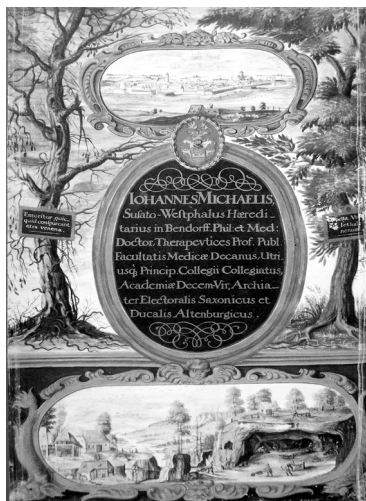 Emoritur quic
quid comburcant
atra venena.
IOHANNES MICHAELIS,
Susato-Westphalus Hæredi-
tarius in Bendorff. Phil: et Med:
Doctor, Therapevtices Prof. Publ.
Facultatis Medicæ Decanus, Utri
usq; Princip. Collegii Collegiatus,
Academiæ Decem-Vir, Archia-
ter Electoralis Saxonicus et
Ducalis Altenburgicus.